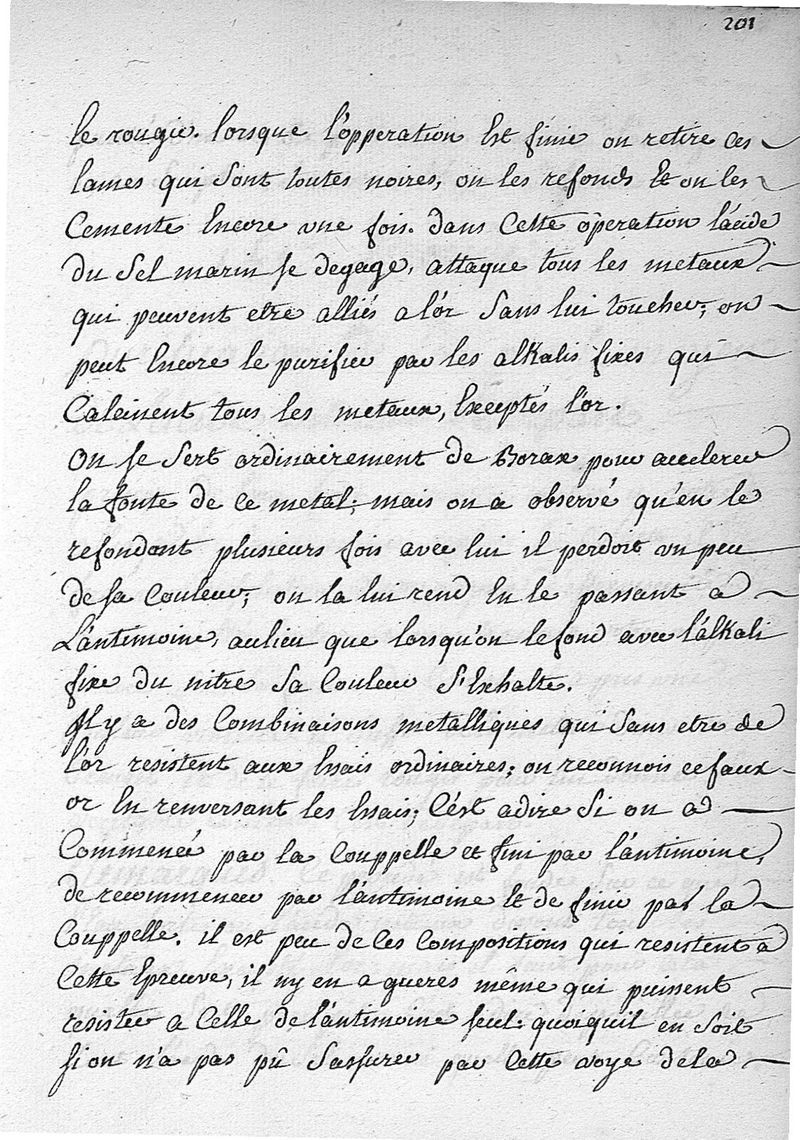 201
le rougir. lorsque l'opperation Est finie on retire ces
lames qui sont toutes noires, on les refonds Et on les
Cemente Encore une fois. dans Cette operation l'acide
du Sel marin se degage, attaque tous les metaux
qui peuvent etre alliés a l'or Sans lui toucher; on
peut Encore le purifier par les alkalis fixes qui
Calcinent tous les metaux, Exceptés l'or.
On se Sert ordinairement de Borax pour accelerer
la fonte de ce metal; mais on a observé qu'en le
refondant plusieurs fois avec lui il perdoit un peu
de sa Couleur; on la lui rend En le passant a
L'antimoine, aulieu que lorsqu'on le fond avec l'alkali
fixe du nitre Sa Couleur S'Exhalte.
Il y a des Combinaisons metalliques qui Sans etre de
l'or resistent aux Essais ordinaires; on reconnois ce faux
or En renversant les Essais; C'est adire Si on a
Commencé par la Couppelle et fini par l'antimoine,
de recommencer par l'antimoine Et de finir par la
Couppelle. il est peu de Ces Compositions qui resistent a
Cette Epreuve, il ny en a gueres même qui puissent
resister a Celle de l'antimoine seul: quoiquil en Soit
si on n'a pas pû S'assurer par Cette voye dela